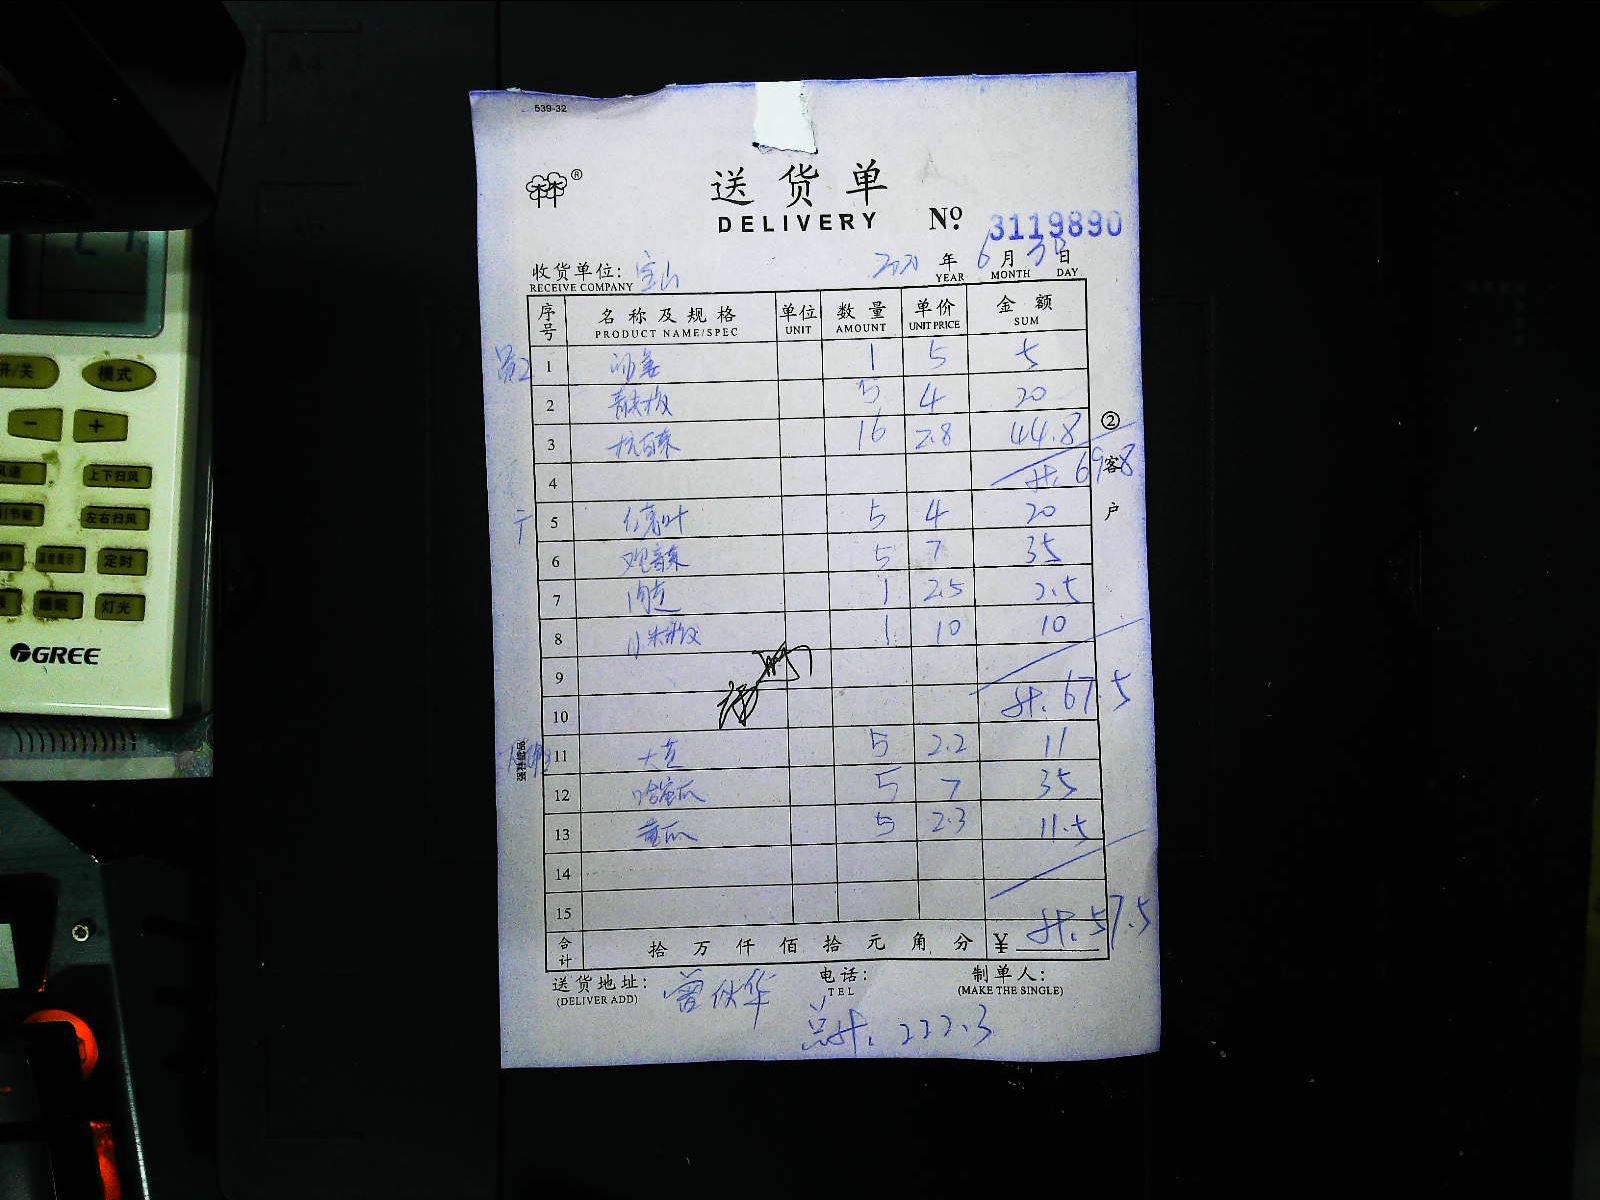 539-32
®
送货单
DELIVERY
№ 3119890
收货单位: 宝山
RECEIVE COMPANY
2021 年 6 月 3日 日
YEAR MONTH DAY
序号 名称及规格 单位 数量 单价 金额
PRODUCT NAME/SPEC UNIT AMOUNT UNIT PRICE SUM
1 1 5 5
2 青尖椒 5 4 20
3 杭白菜 16 2.8 44.8
4 计. 69.8
5 5 4 20
6 观音菜 5 7 35
7 肉豆 1 2.5 2.5
8 小米椒 1 10 10
9
10 计. 67.5
11 大豆 5 2.2 11
12 哈蜜瓜 5 7 35
13 黄瓜 5 2.3 11.5
14
15
合计 拾 万 仟 佰 拾 元 角 分 ¥ 计. 57.5
②客户
送货地址: 电话: 制单人:
(DELIVER ADD) TEL (MAKE THE SINGLE)
总计. 222.3
开/关 模式
- +
风速 上下扫风
左右扫风
定时
睡眠 灯光
GREE